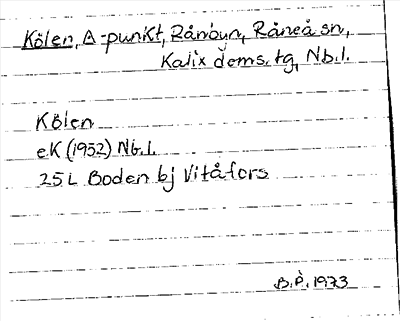 Kölen, A-punkt, Rånbyn, Råneå sn,
Kalix dems. tg, Nb.l.
Kölen
eK (1952) Nb.l.
25L Boden bj Vitåfors
B.P. 1973